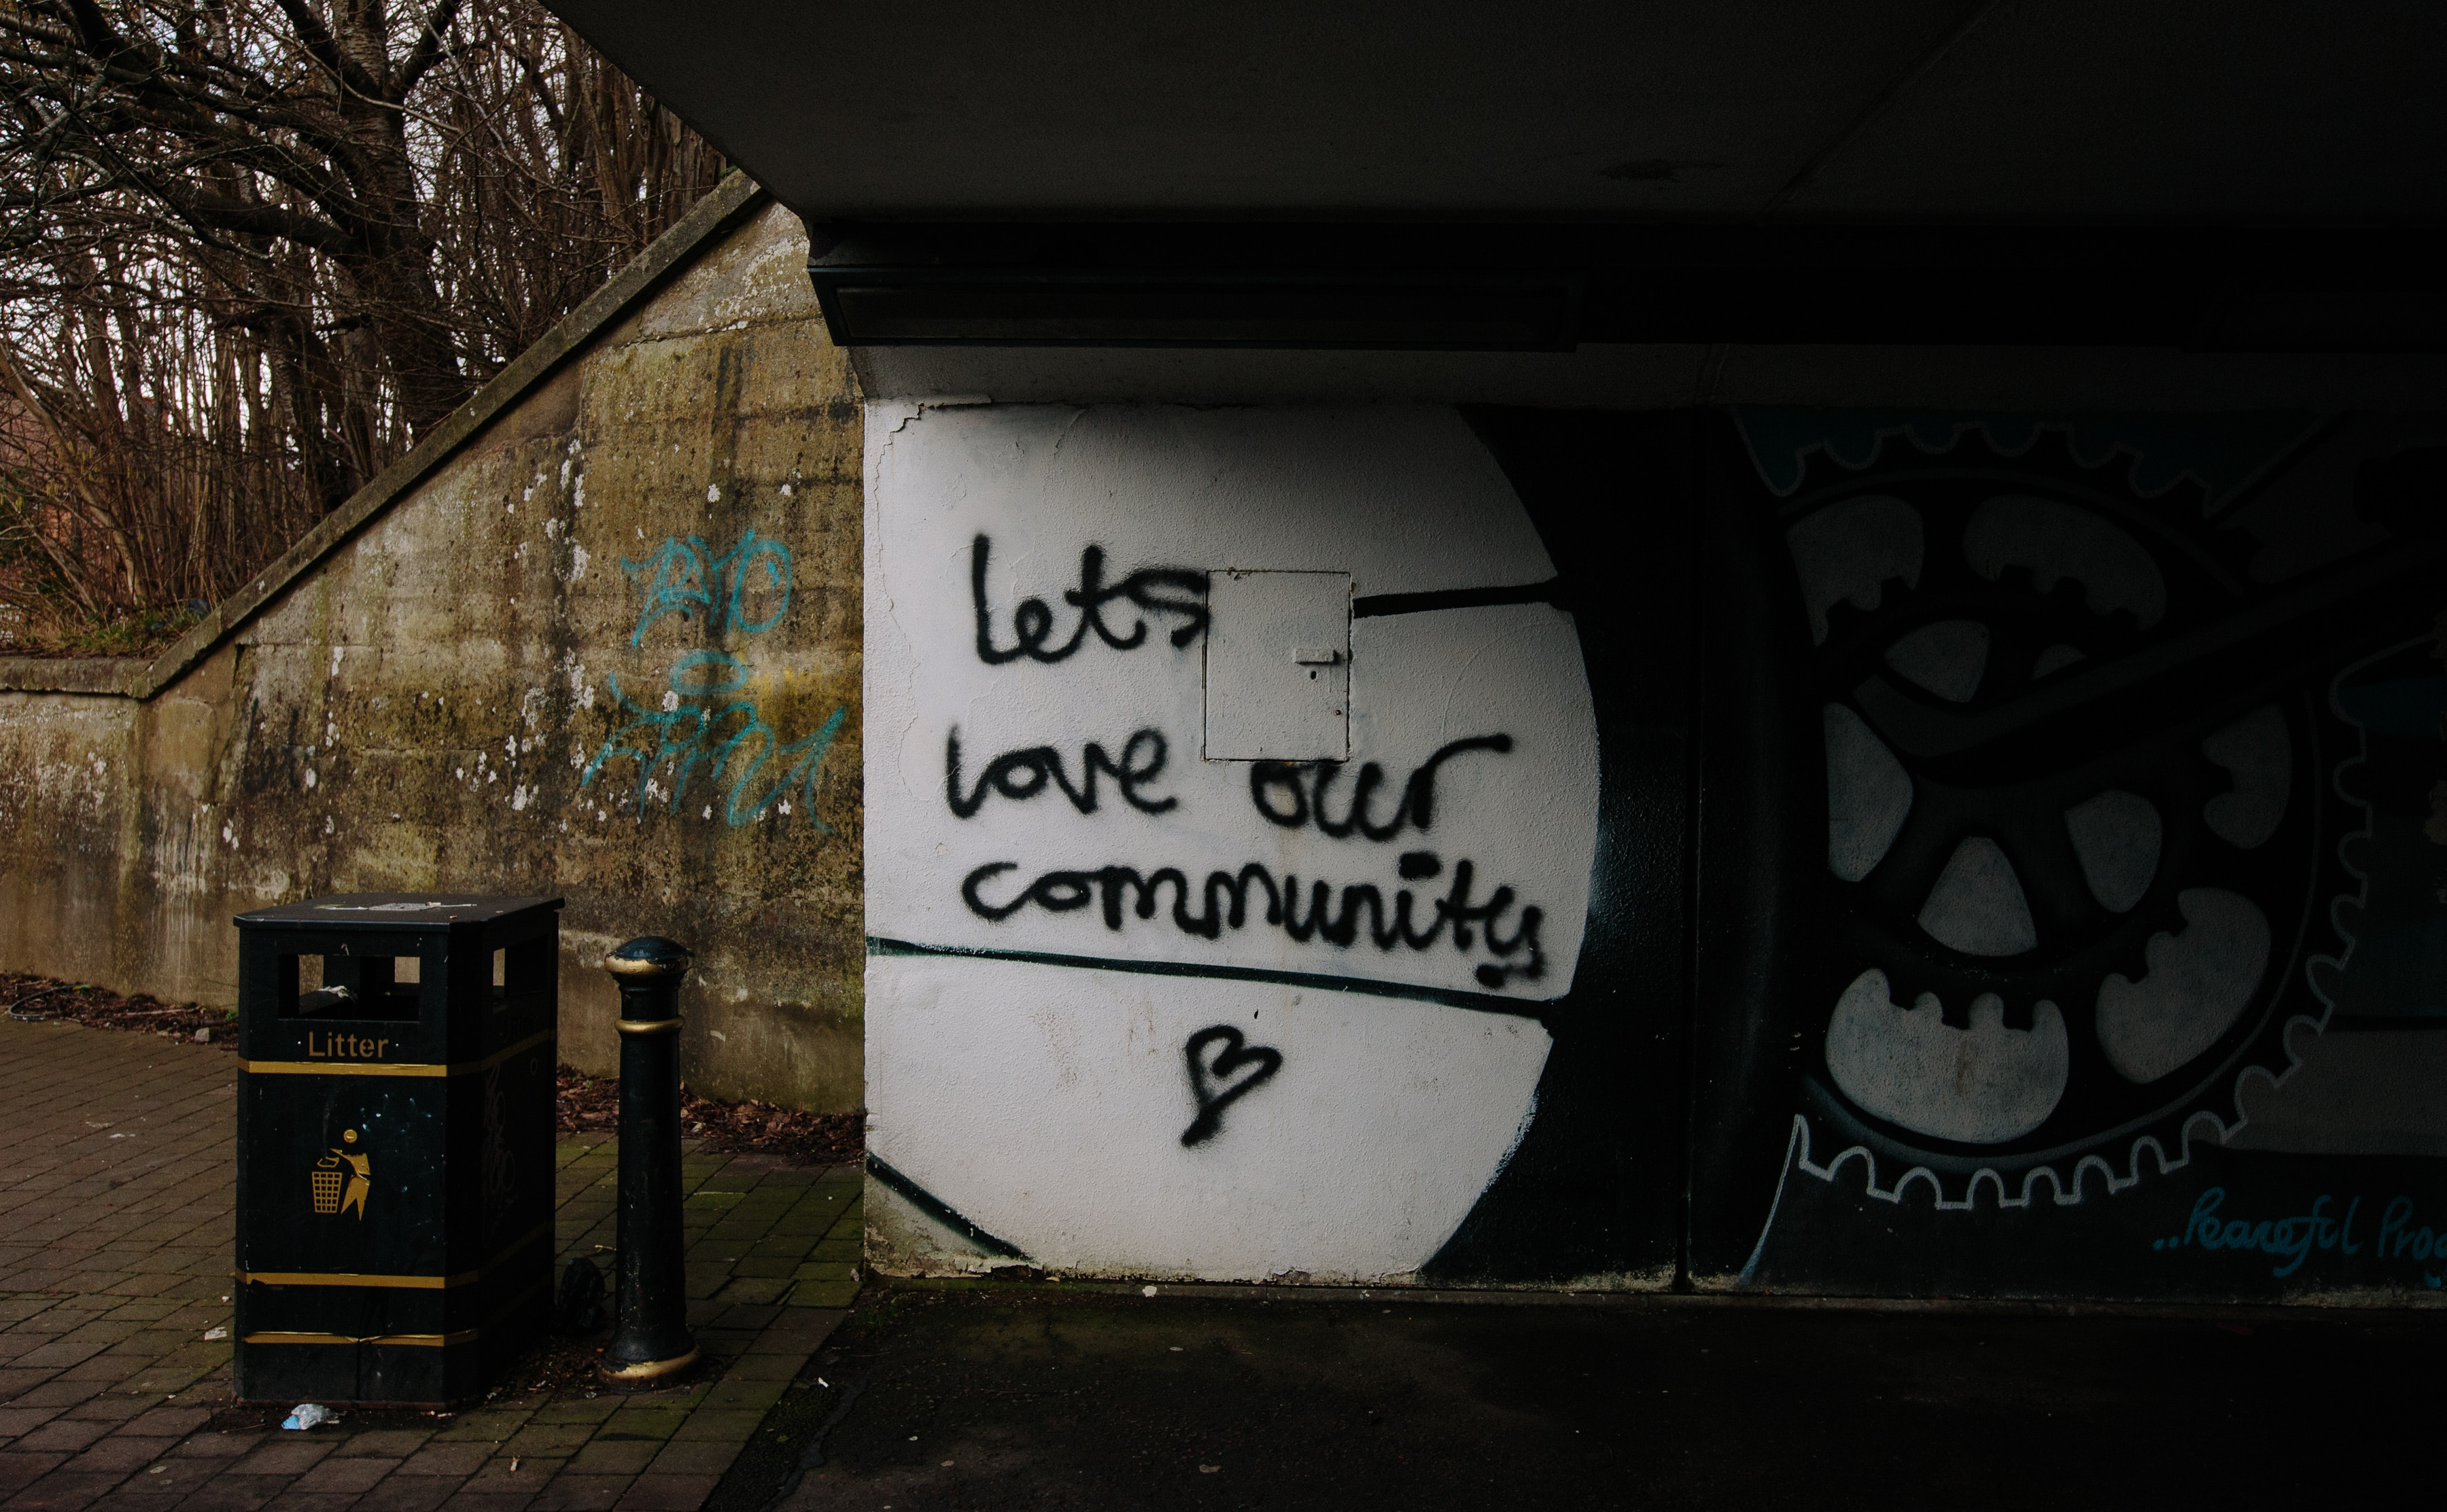 Lets
love our
community
Litter
..Peaceful